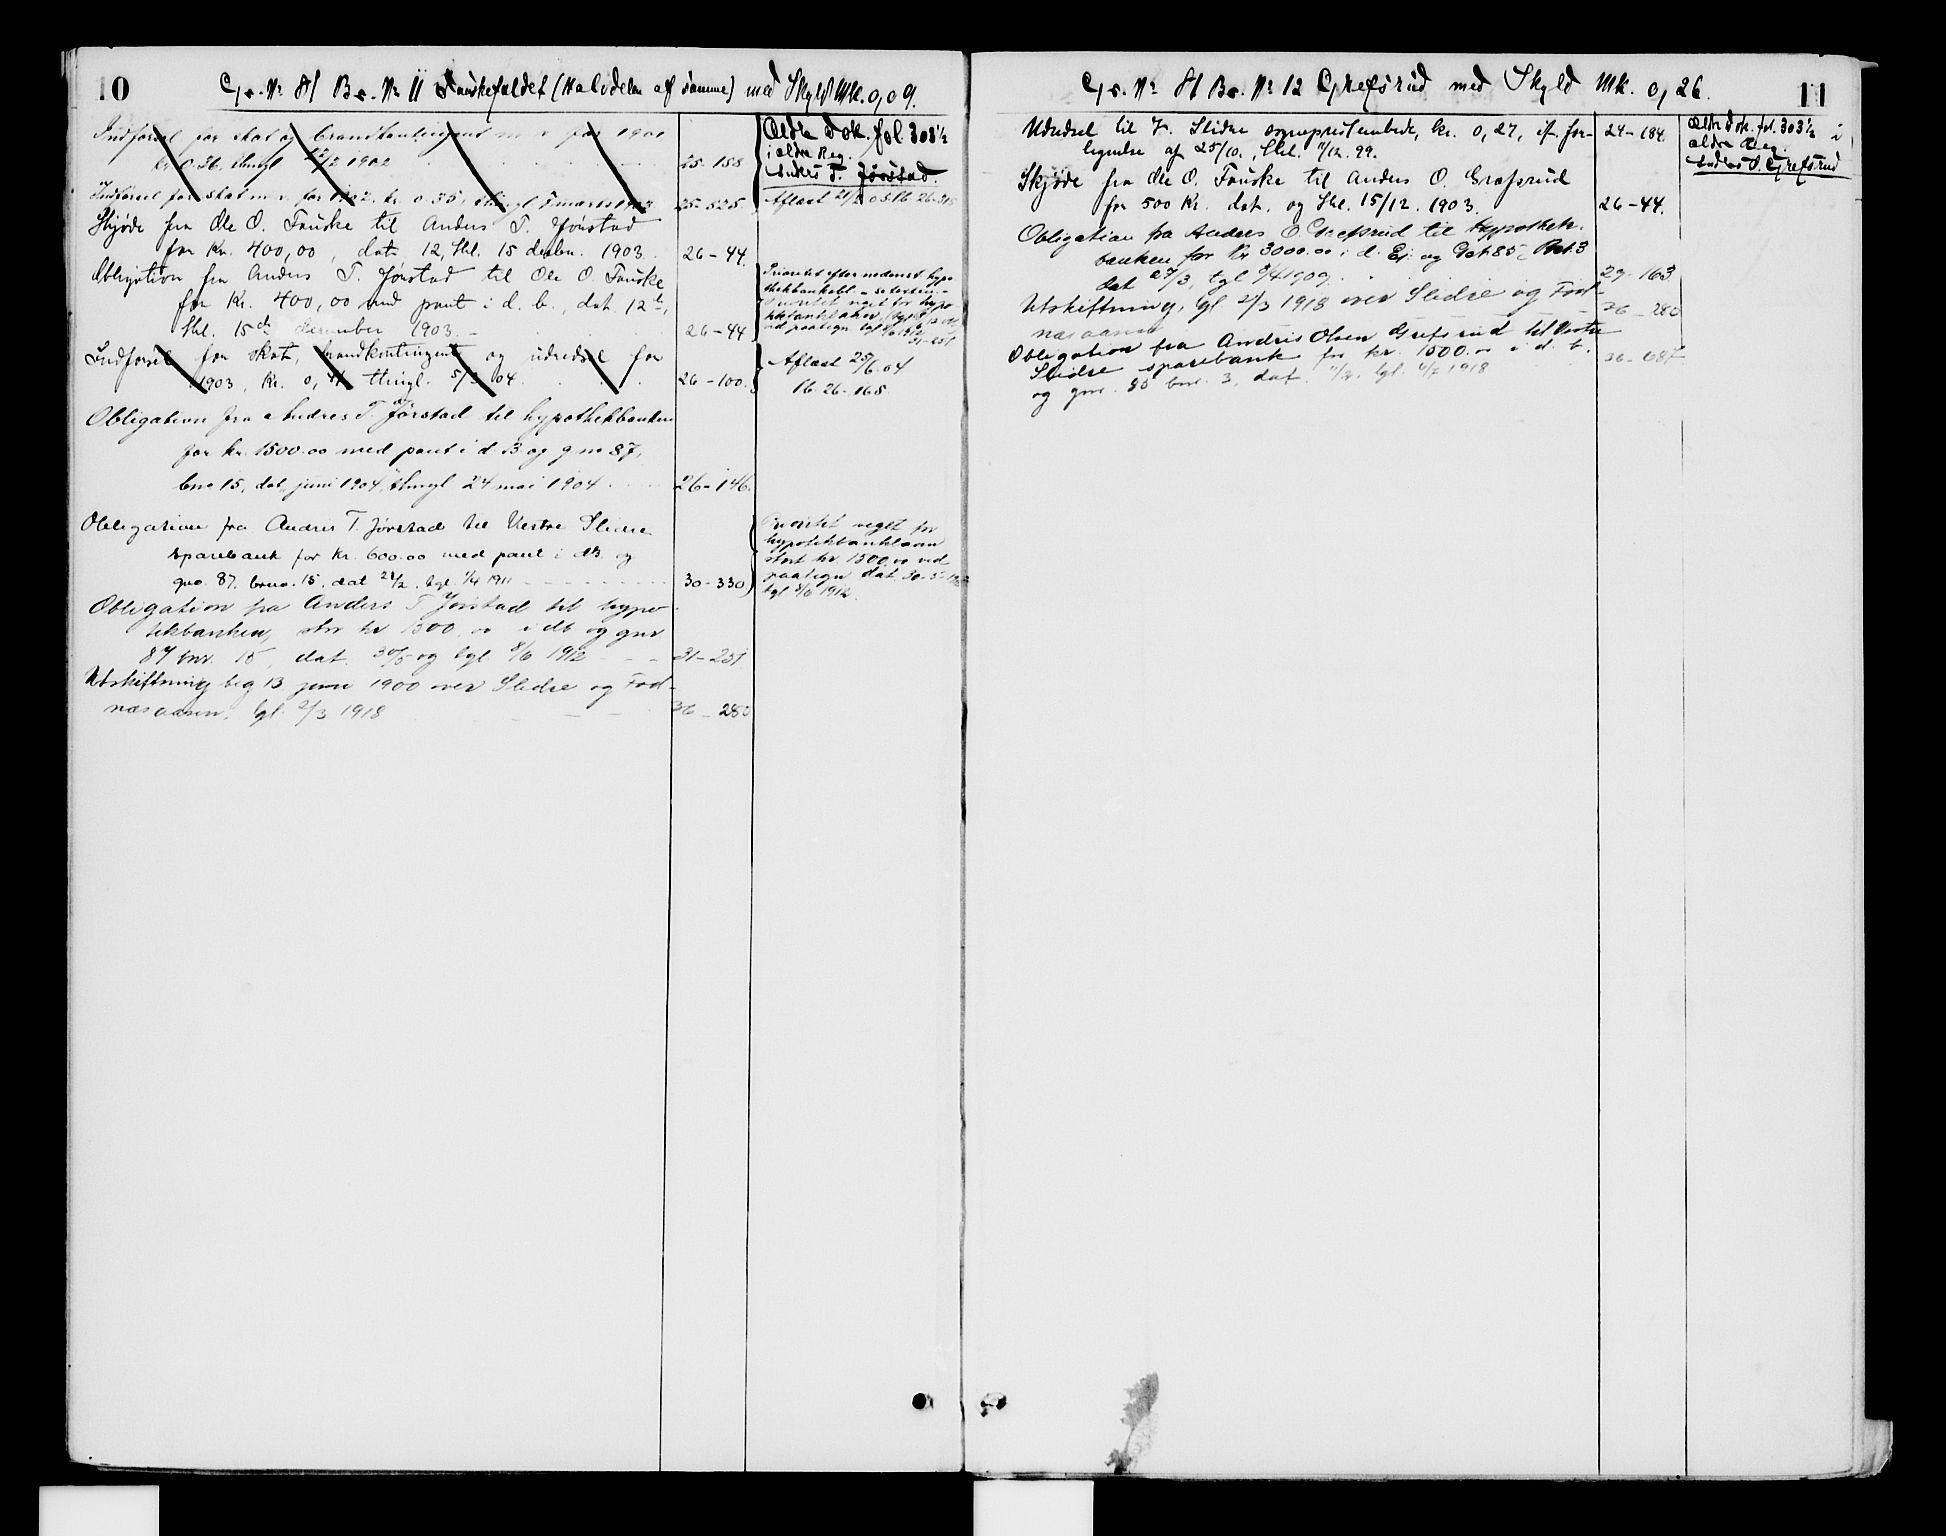 10
Gr. Nr 81 Br. Nr 11 Fauskefaldet (Halvdelen af samme) med Skyld Mk. 0,09.
Indførsel for skat og brandkontingent m. v. for 1900
kr. 0.36, thingl 12/2 1902 25-158
Indførsel for skat m. v. for 1902. kr. 0.35, thingl 7 marts 1903 25-525
Skjøde fra Ole O. Fauske til Anders T. Jørstad
for Kr. 400,00, dat. 12, thl. 15 decbr. 1903. 26-44.
Obligation fra Anders T. Jørstad til Ole O. Fauske
for Kr. 400,00 med pant i d. b., dat. 12te,
thl. 15de december 1903. 26-44
Indførsel for skat, brandkontingent og udredsel for
1903, Kr. 0,41 thingl. 5/3 04. 26-100.
Obligation fra Andres T. Jørstad til hypothekbanken
for kr. 1500.00 med pant i d. B og g no 87,
bno 15, dat. juni 1904, thingl 24 mai 1904 26-146.
Obligation fra Andres T. Jørstad til Vestre Slidre
sparebank for kr. 600.00 med pant i db. og
gno. 87. brno. 15. dat 28/2. tgl. 1/4 1911 30-330
Obligation fra Anders T Jørstad til hypo-
tekbanken, stor kr 1500.00 i db og gnr
87 bnr. 15, dat. 30/5 og tgl. 8/6 1912 31-251
Utskiftning beg 13 juni 1900 over Slidre og Fod-
næsaasen, tgl. 2/3 1918 36-280
Ældre Dok. fol 303½
i ældre Reg.
Anders T. Jørstad.
Aflæst 21/2 05 Pb 26-315
Prioritet efter nedenst. hypo-
thekbankobl.
Prioritet veget for hypo
thekbanklaan
ved paategn tgl 8/6 1912
31-251
Aflæst 25/6 04
Pb. 26-165
Prioritet veget for
hypotekbanklaan
stort kr. 1500.00 ved
paategn dat 30-5-1912
tgl 8/6 1912.
11
Gr. Nr 81 Br. Nr 12 Grefsrud med Skyld Mk. 0,26.
Udredsel til V. Slidre sogneprestembede, kr. 0,27, if. for-
lignelse af 25/10., thl. 11/12. 99. 24-184.
Skjøde fra Ole O. Fauske til Anders O. Grefsrud
for 500 Kr. dat. og thl. 15/12. 1903. 26-44.
Obligation fra Anders O. Grefsrud til hypothek-
banken for Kr. 3000.00 i d. Ei. og G nr 85 Br nr 3
dat 27/3, tgl 5/4 1909. 29-163
Utskiftning, tgl 2/3 1918 over Slidre og Fod-
næsaasen 36-280
Obligation fra Andris Olsen Grefsrud til Vestre
Slidre sparebank for kr. 1500.00 i d. b.
og gnr. 85 bnr. 3, dat. tgl. 6/7 1918 36-687
Ældre Dok. fol. 303½ i
ældre Reg.
Anders O. Grefsrud